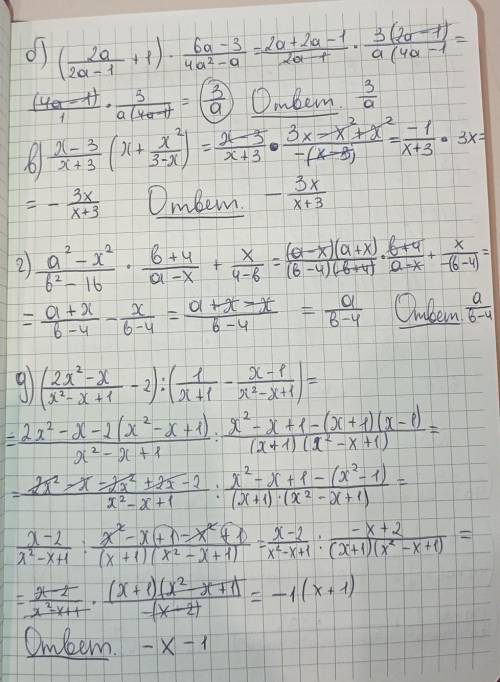 б) (2a/(2a-1) + 1) · (6a-3)/(4a²-a) = (2a+2a-1)/(2a-1) · 3(2a-1)/(a(4a-1) =
(4a-1)/1 · 3/(a(4a-1)) = 3/a Ответ. 3/a
в) (x-3)/(x+3) (x + x²/(3-x)) = (x-3)/(x+3) · (3x-x²+x²)/(-(x-3)) = -1/(x+3) · 3x =
= - 3x/(x+3) Ответ. - 3x/(x+3)
г) (a²-x²)/(b²-16) · (b+4)/(a-x) + x/(4-b) = (a-x)(a+x)/((b-4)(b+4)) · (b+4)/(a-x) + x/(-(b-4) =
= (a+x)/(b-4) - x/(b-4) = (a+x-x)/(b-4) = a/(b-4) Ответ. a/(b-4)
д) ((2x²-x)/(x²-x+1) - 2) : (1/(x+1) - (x-1)/(x²-x+1)) =
= (2x²-x-2(x²-x+1))/(x²-x+1) : (x²-x+1-(x+1)(x-1))/((x+1)(x²-x+1)) =
= (2x²-x-2x²+2x-2)/(x²-x+1) : (x²-x+1-(x²-1))/((x+1):(x²-x+1)) =
(x-2)/(x²-x+1) : (x²-x+1-x²+1)/((x+1)(x²-x+1)) = (x-2)/(x²-x+1) : (-x+2)/((x+1)(x²-x+1)) =
= (x-2)/(x²-x+1) · (x+1)(x²-x+1)/(-(x-2)) = -1(x+1)
Ответ. -x-1